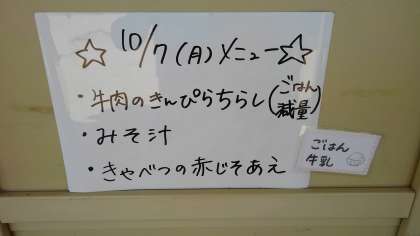 ☆ 10/7(月)メニュー☆
・牛肉のきんぴらちらし(ごはん減量)
・みそ汁
・きゃべつの赤じそあえ
ごはん
牛乳